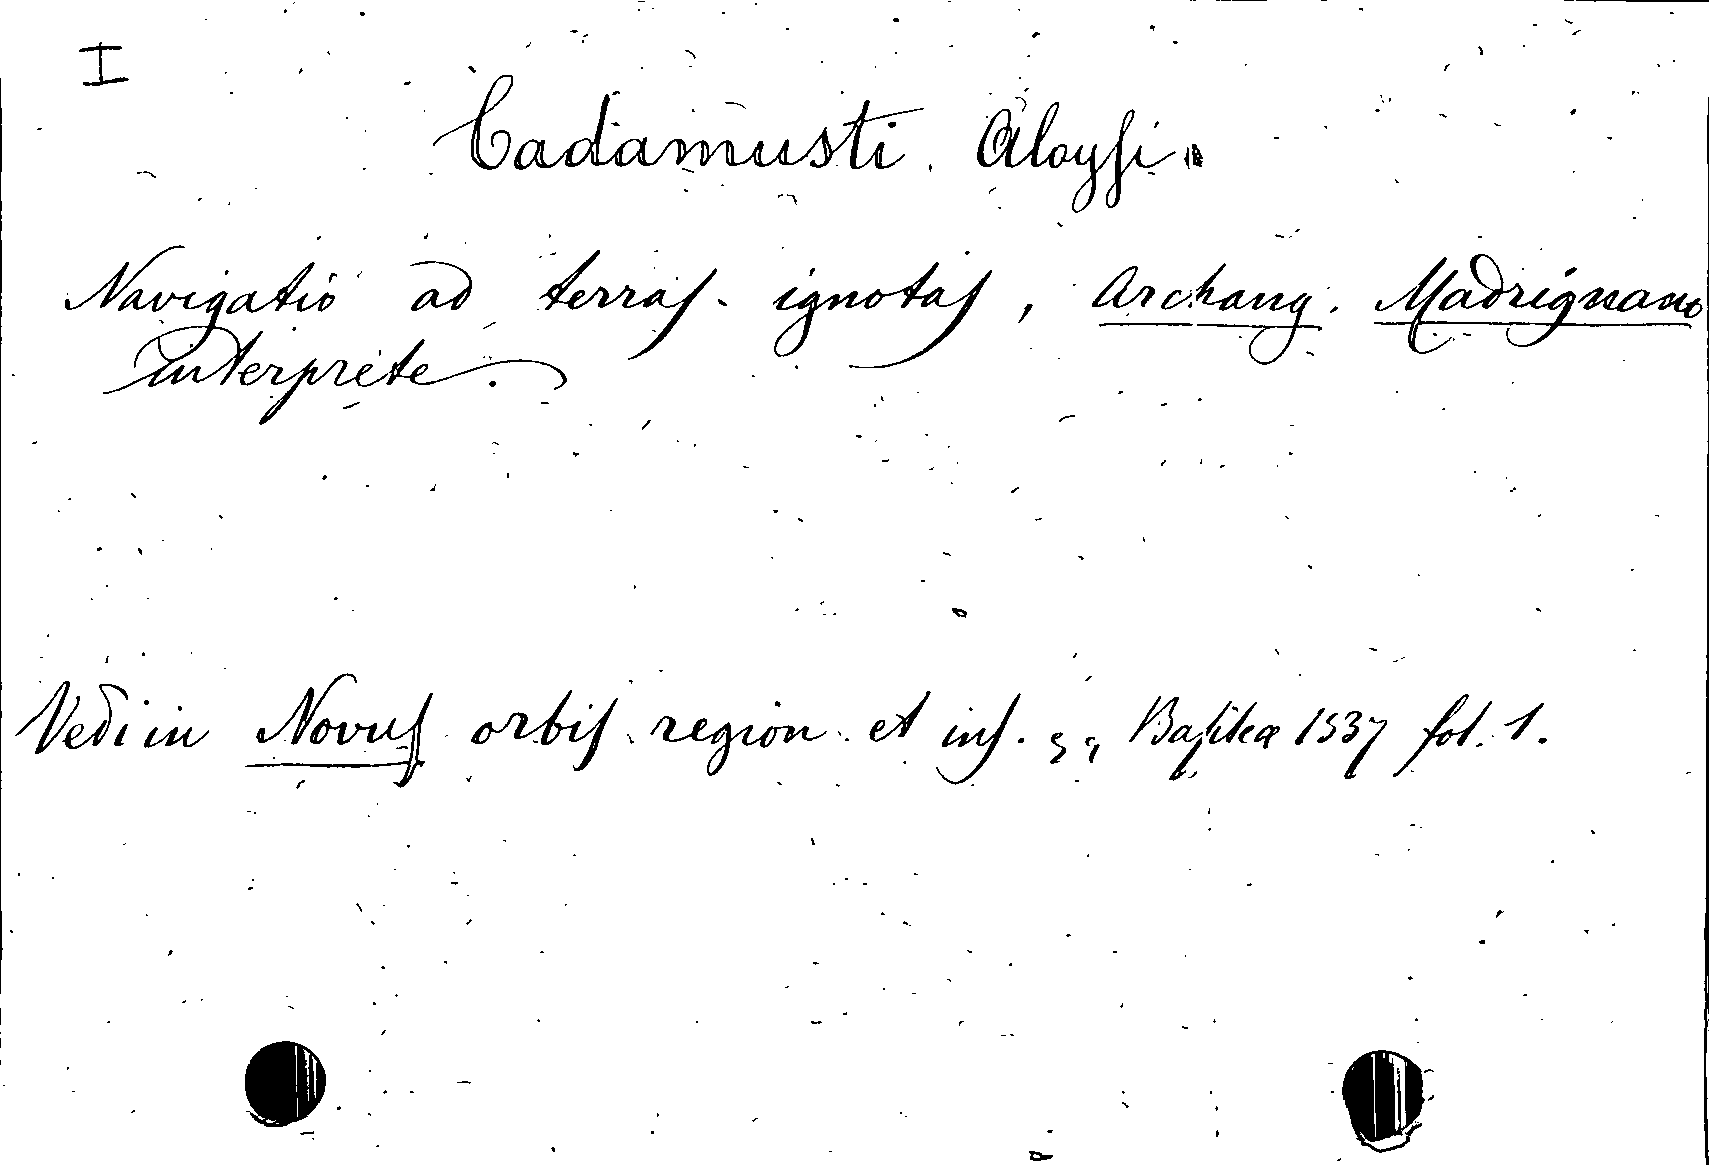 I
Cadamusti. Aloysi.
Navigatio ad terras ignotas, Archang. Madrignano
interprete.
Vedi in Novus orbis region et ins. Basileæ 1537 fol. 1.